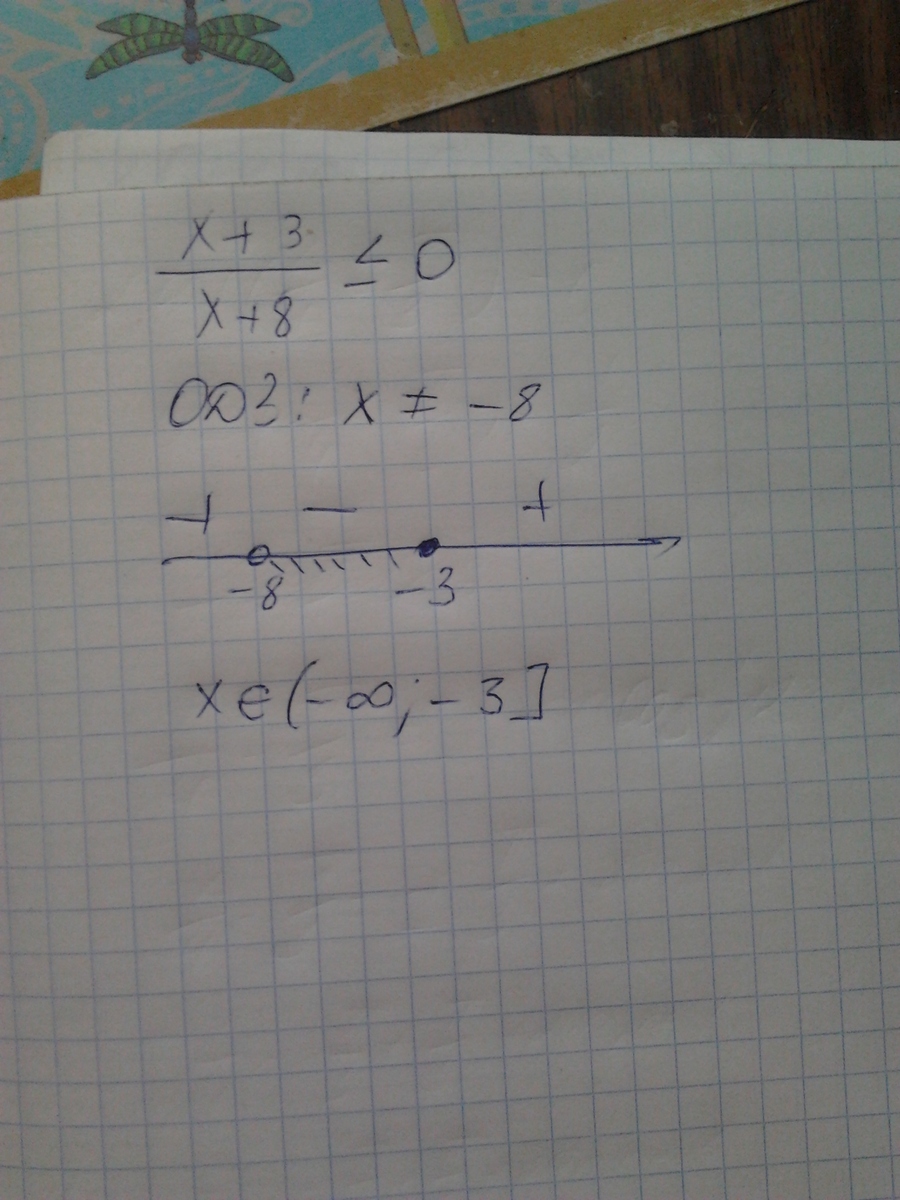 x + 3
x + 8
≤ 0
ОДЗ: x ≠ -8
+ − +
-8 -3
x ∈ (-∞; -3]